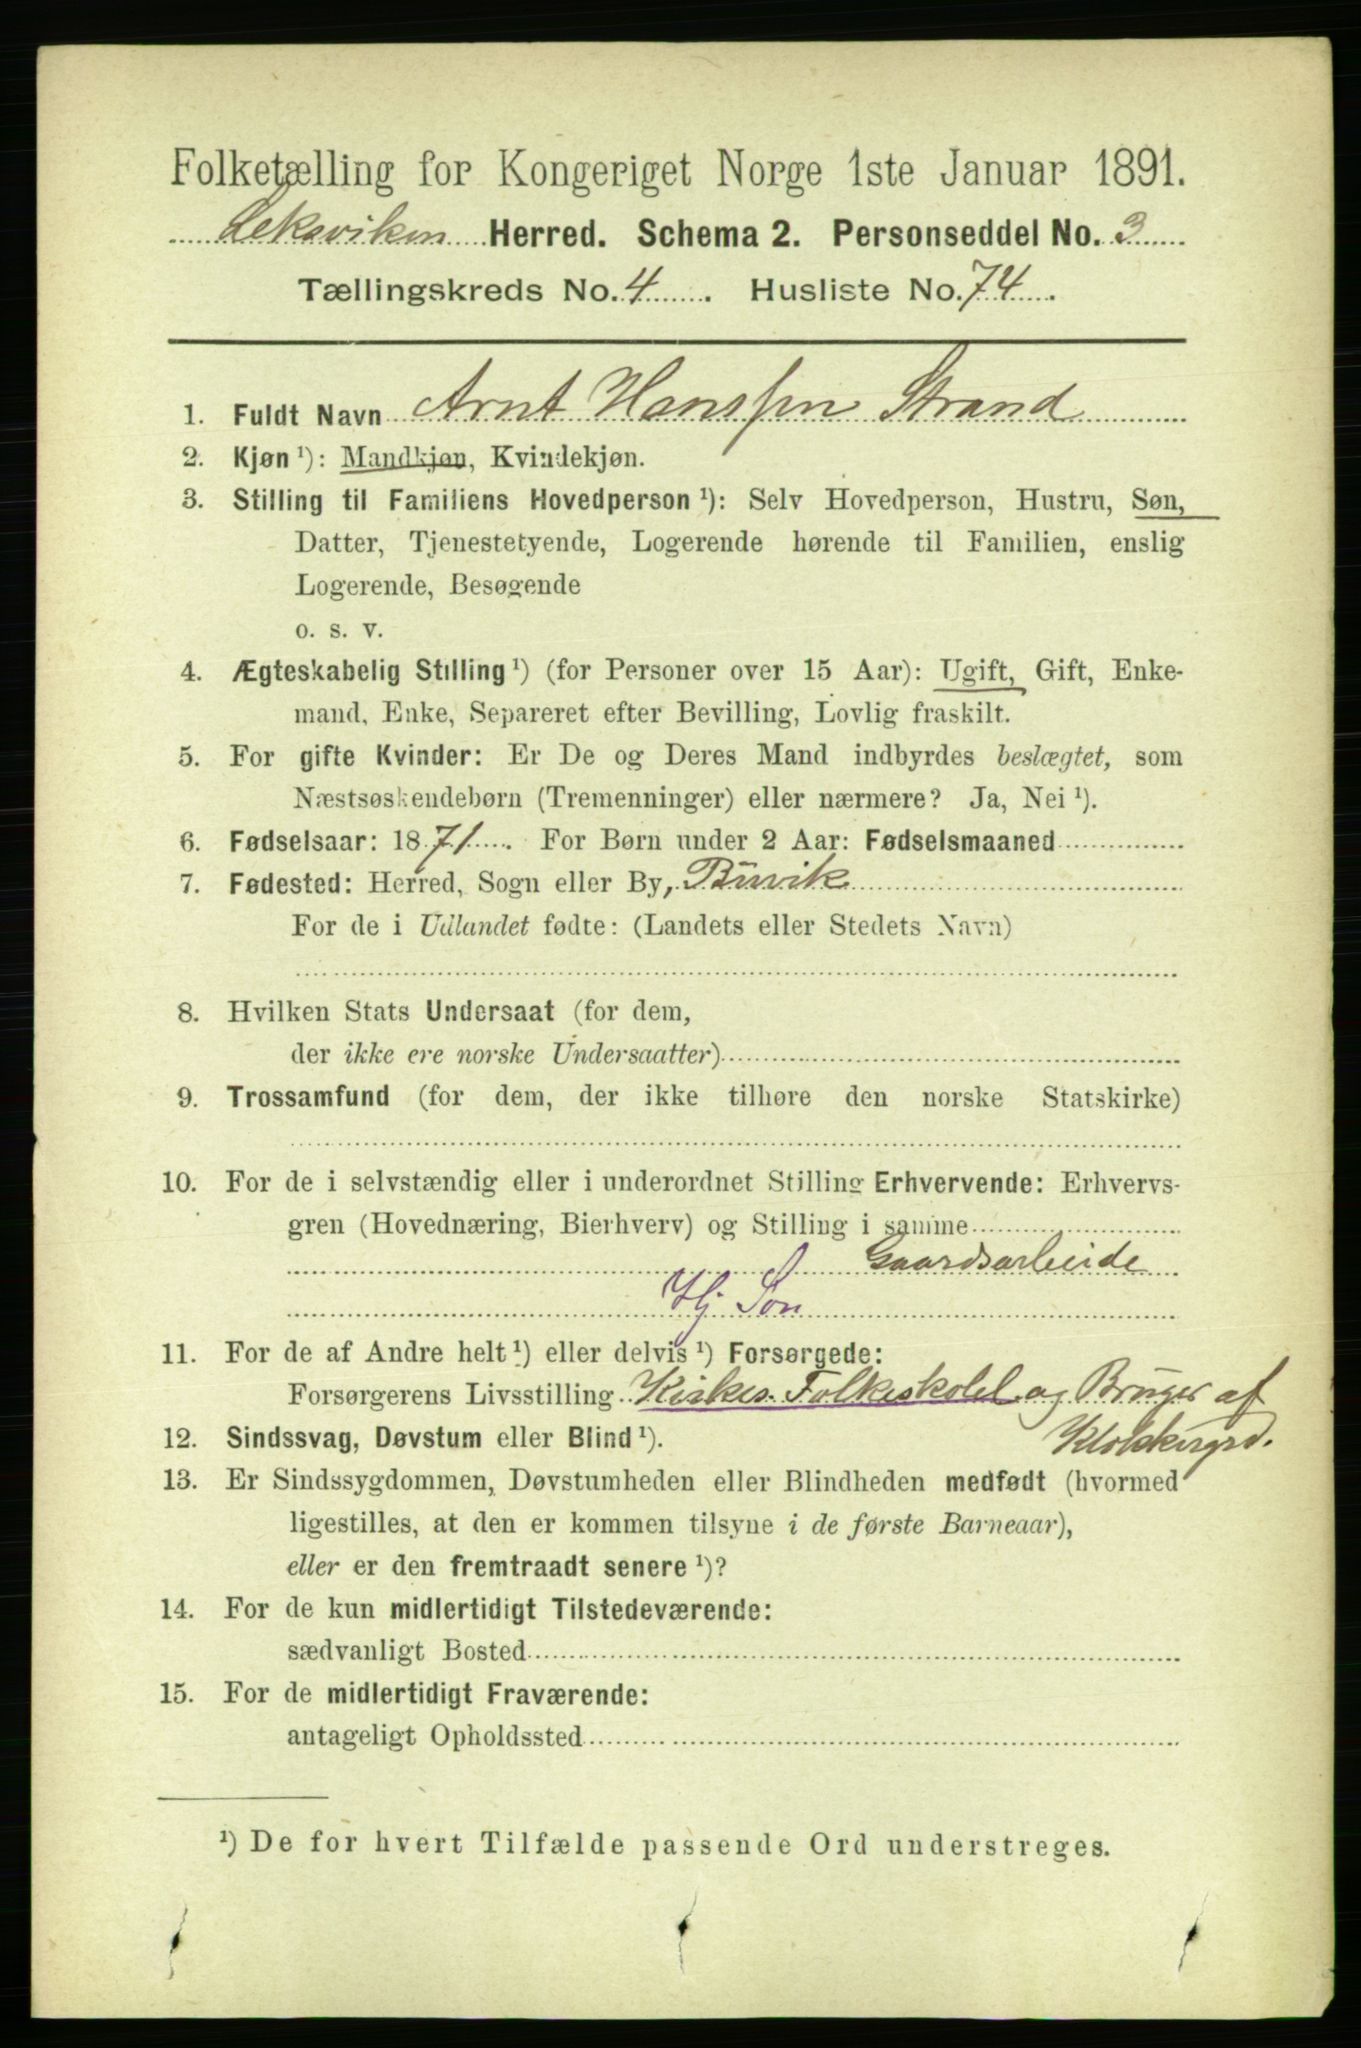 Folketælling for Kongeriget Norge 1ste Januar 1891.
Leksviken Herred. Schema 2. Personseddel No. 3
Tællingskreds No. 4. Husliste No. 74.
1. Fuldt Navn Arnt Hanssen Strand
2. Kjøn ¹): Mandkjøn, Kvindekjøn.
3. Stilling til Familiens Hovedperson ¹): Selv Hovedperson, Hustru, Søn,
Datter, Tjenestetyende, Logerende hørende til Familien, enslig
Logerende, Besøgende
o. s. v.
4. Ægteskabelig Stilling ¹) (for Personer over 15 Aar): Ugift, Gift, Enke-
mand, Enke, Separeret efter Bevilling, Lovlig fraskilt.
5. For gifte Kvinder: Er De og Deres Mand indbyrdes beslægtet, som
Næstsøskendebørn (Tremenninger) eller nærmere? Ja, Nei ¹).
6. Fødselsaar: 1871. For Børn under 2 Aar: Fødselsmaaned
7. Fødested: Herred, Sogn eller By, Buvik
For de i Udlandet fødte: (Landets eller Stedets Navn)
8. Hvilken Stats Undersaat (for dem,
der ikke ere norske Undersaatter)
9. Trossamfund (for dem, der ikke tilhøre den norske Statskirke)
10. For de i selvstændig eller i underordnet Stilling Erhvervende: Erhvervs-
gren (Hovednæring, Bierhverv) og Stilling i samme
Gaardsarbeide
Hj Søn
11. For de af Andre helt ¹) eller delvis ¹) Forsørgede:
Forsørgerens Livsstilling Kirkes. Folkeskolel og Bruger af
Klokkergrd.
12. Sindssvag, Døvstum eller Blind ¹).
13. Er Sindssygdommen, Døvstumheden eller Blindheden medfødt (hvormed
ligestilles, at den er kommen tilsyne i de første Barneaar),
eller er den fremtraadt senere ¹)?
14. For de kun midlertidigt Tilstedeværende:
sædvanligt Bosted
15. For de midlertidigt Fraværende:
antageligt Opholdssted
¹) De for hvert Tilfælde passende Ord understreges.